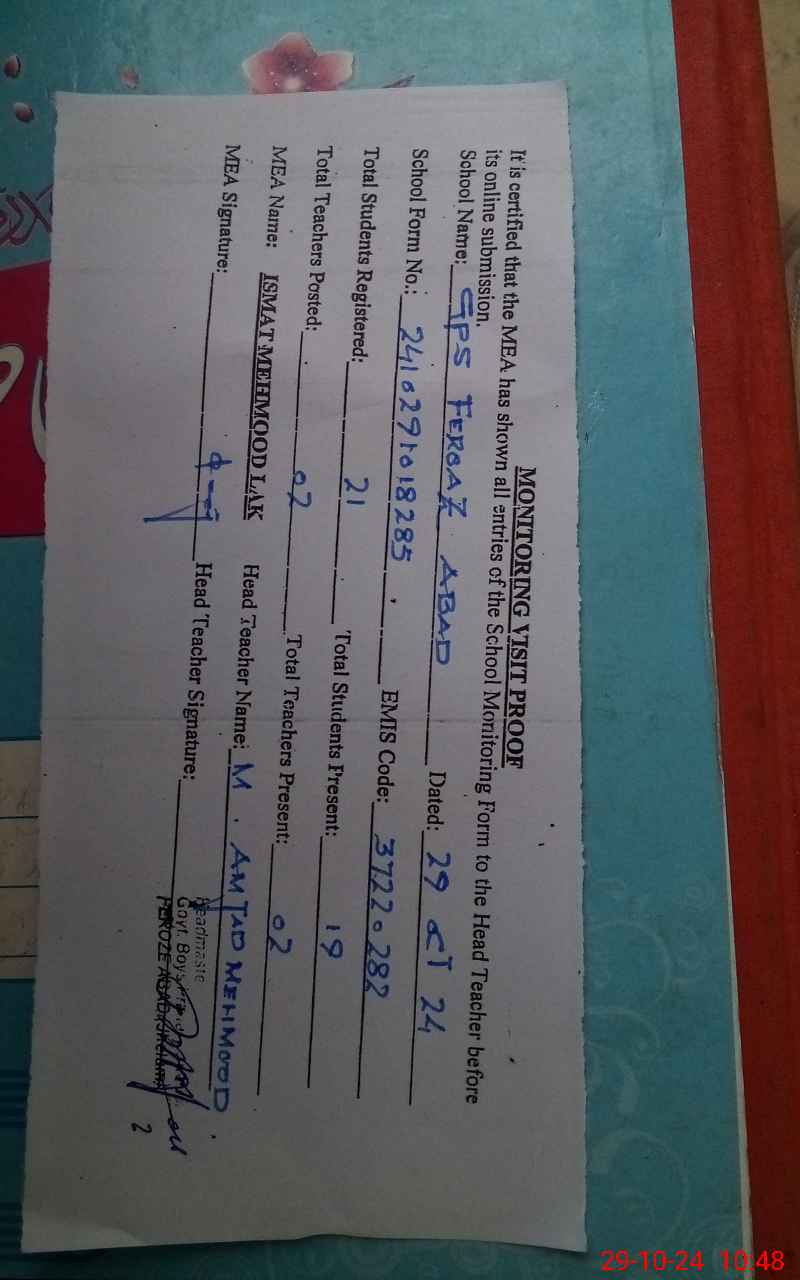 MONITORING VISIT PROOF
It is certified that the MEA has shown all entries of the School Monitoring Form to the Head Teacher before
its online submission.
School Name: GPS FEROAZ ABAD Dated: 29 OCT 24
School Form No.: 2410291018285 EMIS Code: 37220282
Total Students Registered: 21 Total Students Present: 19
Total Teachers Posted: 02 Total Teachers Present: 02
MEA Name: ISMAT MEHMOOD LAK Head Teacher Name: M. AMJAD MEHMOOD
MEA Signature: Head Teacher Signature:
Headmaste
Govt. Boys
2
29-10-24 10:48